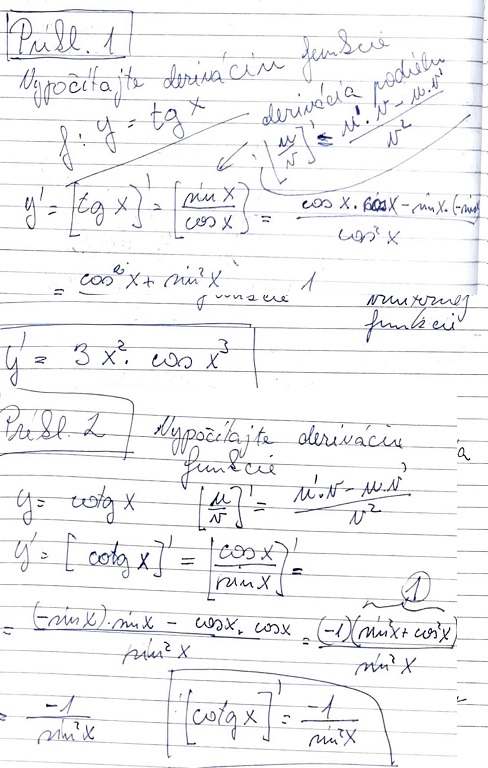 Prísl. 1
Vypočítajte deriváciu funkcie
f: y = tg x
derivácia podielu
[u/v]' = (u'·v - u·v')/v²
y' = [tg x]' = [sin x/cos x]' = (cos x · cos x - sin x·(-sin
cos² x
= cos² x + sin² x
funkcie 1 vnútornej
funkcie
y' = 3x² · cos x³
Prísl. 2 Vypočítajte deriváciu
a
funkcie
y = cotg x [u/v]' = (u'·v - u·v')/v²
y' = [cotg x]' = [cos x/sin x]' =
1
= ((-sin x)·sin x - cos x · cos x)/sin² x = (-1)(sin² x + cos² x)/sin² x
= -1/sin² x [cotg x]' = -1/sin² x